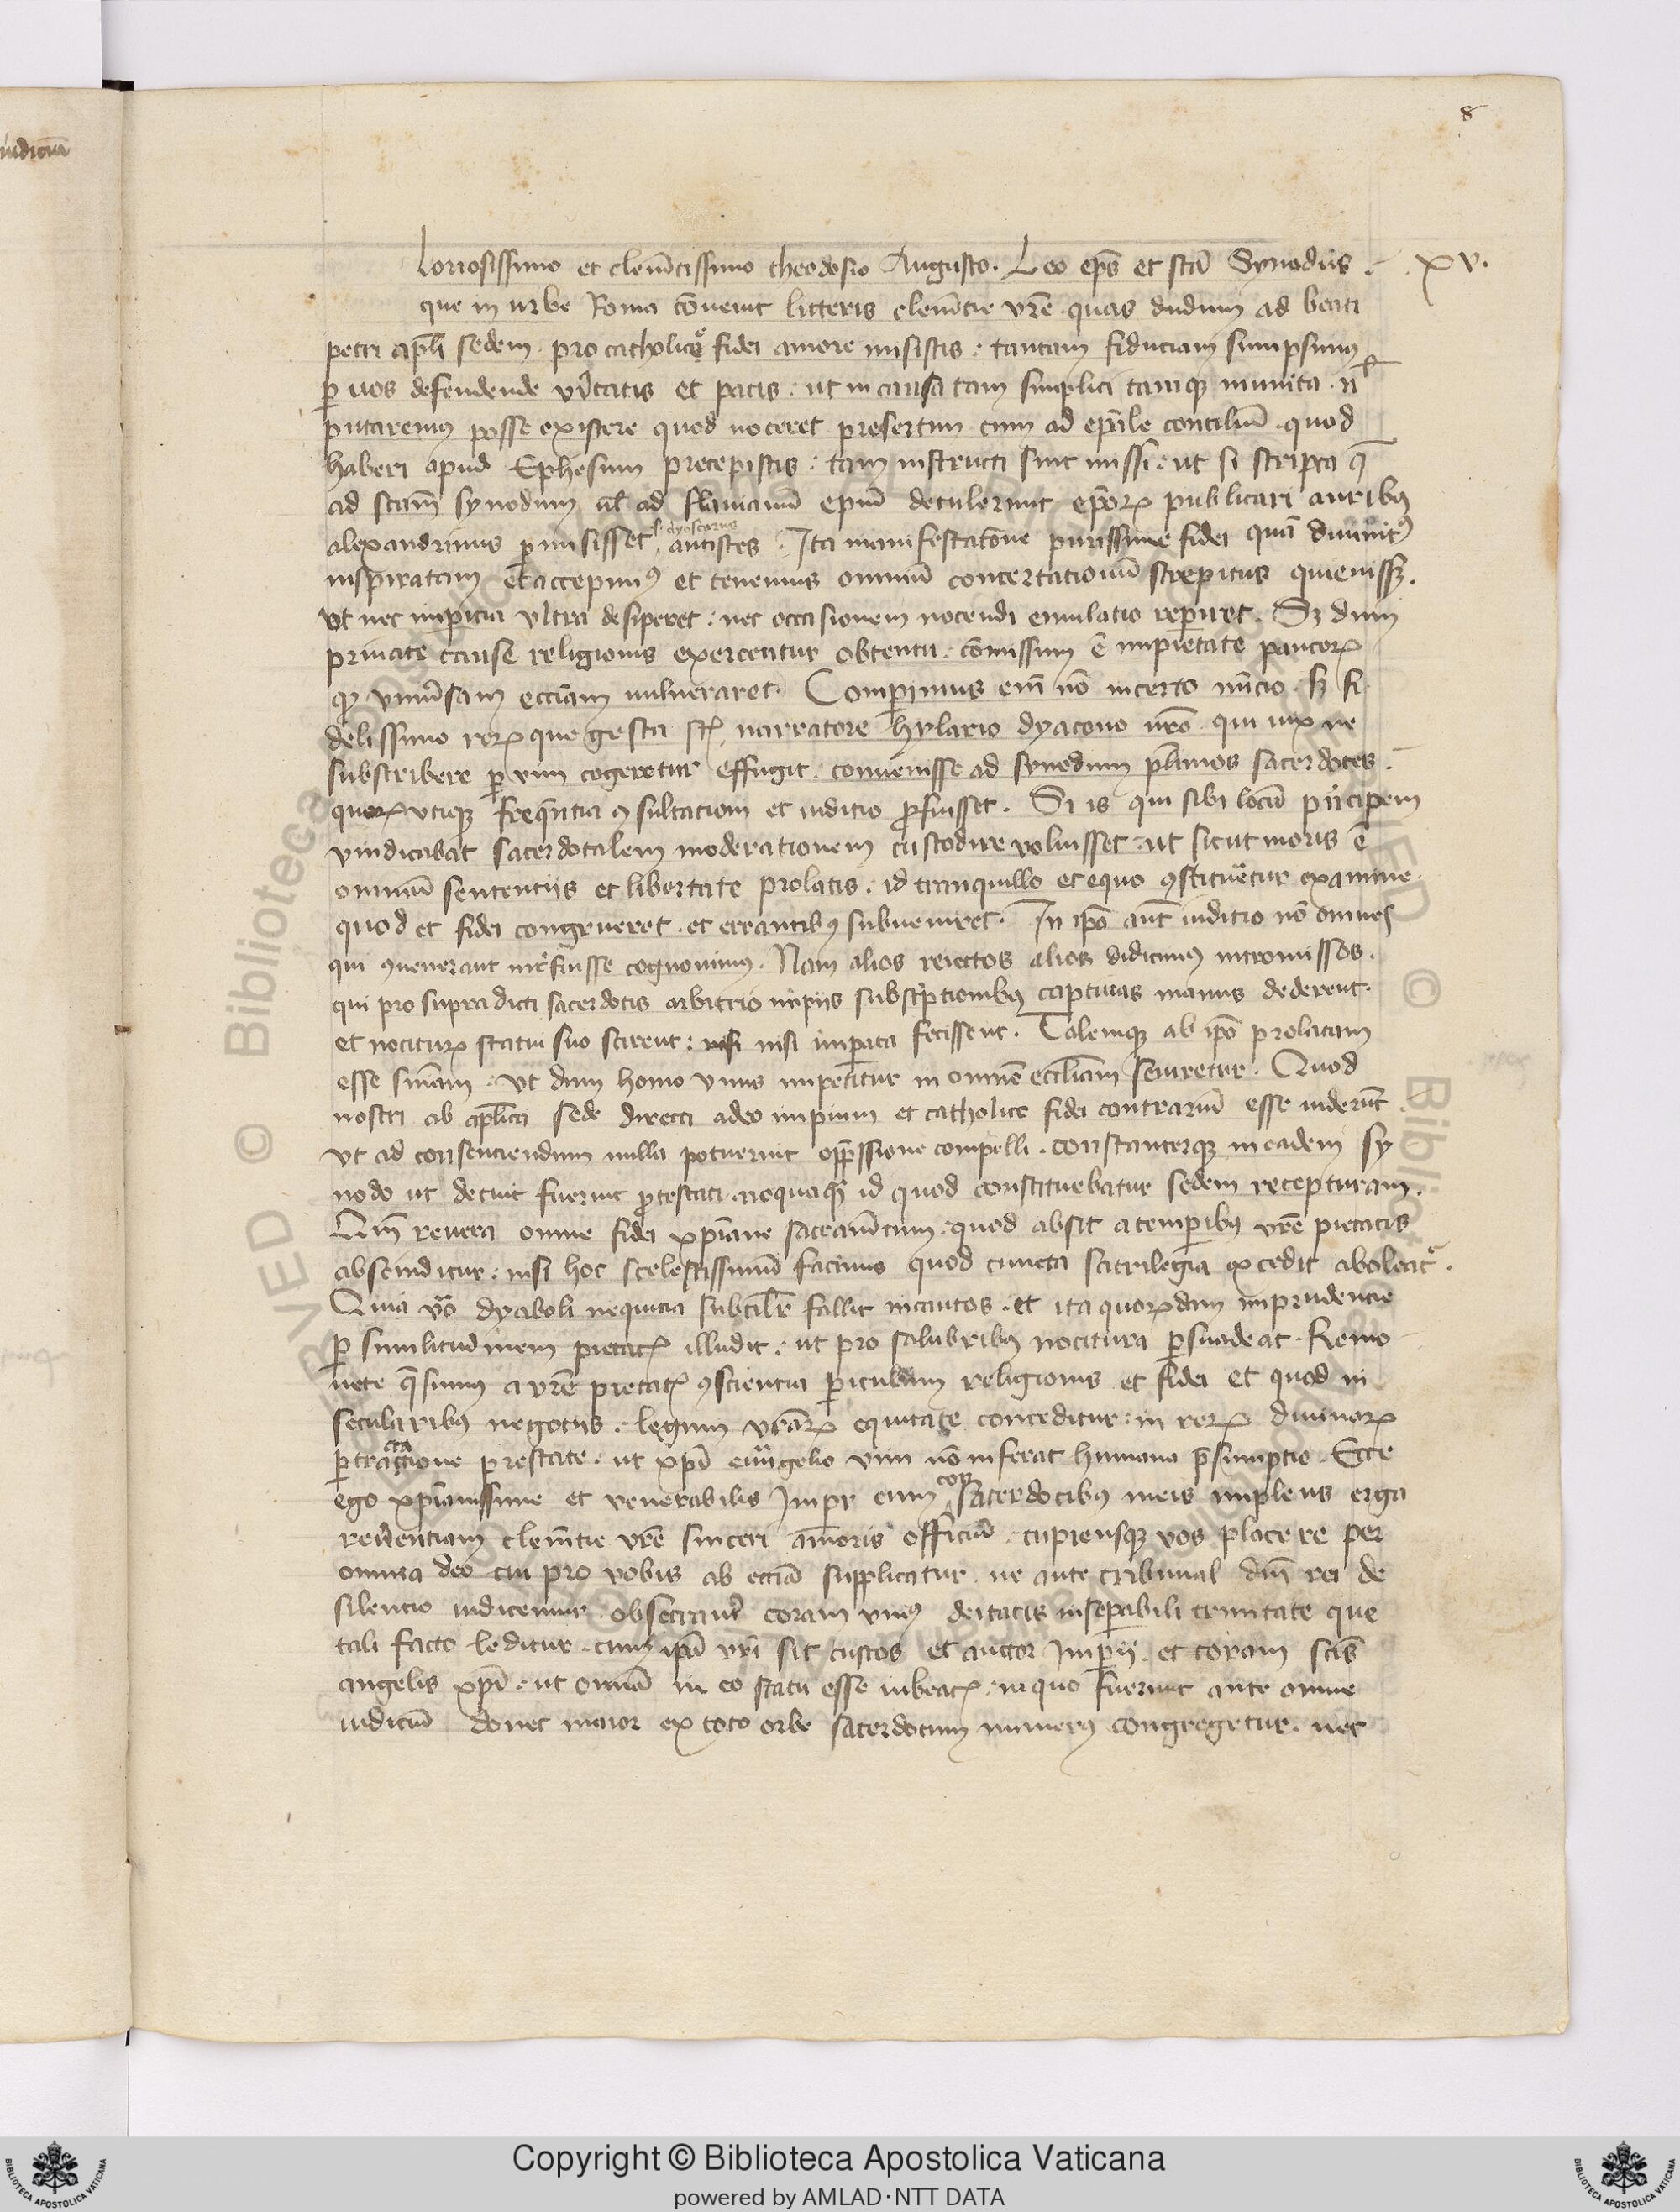 8
loriosissimo et clemẽtissimo theodosio Augusto. Leo ep̃s et sc̃a Synodus. XV.
que in urbe Roma cõuenit litteris clemẽtie vr̃e quas dudum ad beati
petri apl̃i sedem pro catholice fidei amore misistis: tantam fiduciam sumpsimꝰ
ꝑ uos defendende ṽitatis et pacis. ut in causa tam simplici tamqꝫ munita. nˡ
putaremꝰ posse existere quod noceret presertim cum ad ep̃ale conciliũ quod
haberi apud Ephesum precepistis: tam instructi sint missi. ut si scripta q̃
ad sc̃am synodum ul̃ ad flauianũ ep̃m detulerunt ep̃orꝝ publicari auribꝰ
alexandrinus ꝑmisisset dyoscorus antistes. Ita manifestatõne purissime fidei quã diuinitꝰ
inspiratam et accepimꝰ et tenemus omniũ concertationũ strepitus quieuissꝫ.
vt nec impicia vltra desiperet: nec occasionem nocendi emulatio reperiret. Sꝫ dum
priuate cause religionis exercentur obtentu. cõmissum ẽ impietate paucorꝝ
qͦ vniũsam ecc̃iam uulneraret. Comperimus em̃ nõ incerto nũcio. sꝫ fi
delissimo rerꝝ que gesta st̃ narratore hylario dyacono nr̃o qui uix ne
subscribere ꝑ vim cogeretur effugit. conuenisse ad synodum pl̃imos sacerdotes.
quorꝝ vtiqꝫ freq̃ntia ꝯsultationi et iuditio ꝓfuisset. Si is qui sibi locũ principem
vindicabat sacerdotalem moderationem custodire voluisset ut sicut moris ẽ
omniũ sententiis et libertate prolatis. id tranquillo et equo ꝯstitueretur examine.
quod et fidei congrueret. et errantibꝰ subueniret. In ip̃o aũt iuditio nõ omnes
qui ꝯuenerant int̃fuisse cognouimꝰ. Nam alios reiectos alios didicimꝰ intromissos.
qui pro supradicti sacerdotis arbitrio impiis subscriptionibꝰ captiuas manus dederent.
et nociturꝝ statui suo scirent: nisi imꝑata fecissent. Talemqꝫ ab ip̃o prolatam
esse sñiam. vt dum homo vnus impetitur in omnẽ eccl̃iam seuiretur. Quod
nostri ab apl̃ica sede directi adeo impium et catholice fidei contrariũ esse uiderũt.
vt ad consenciendum nulla potuerint opp̃ssione compelli. constanterqꝫ in eadem sy
nodo ut decuit fuerint ꝓtestati nequaqͣ id quod constituebatur sedem recepturam.
Qm̃ reuera omne fidei xp̃iane sacramẽtum. quod absit a temꝑibꝰ vr̃e pietatis
absciditur: nisi hoc scelestissimũ facinus quod cuncta sacrilegia excedit aboleat̃.
Quia ṽo dyaboli nequicia subtilit̃ fallit incautos. et ita quorꝝdam imprudencie
ꝑ similitudinem pietatꝭ illudit: ut pro salubribꝰ nocitura ꝑsuadeat. Remo
uete q̃sumꝰ a vr̃e pietatꝭ ꝯsciencia ꝑiculum religionis et fidei et quod in
secularibꝰ negotiis. legum vr̃arꝝ equitate conceditur: in rerꝝ diuinarꝝ
ꝑtractatione prestate. ut xp̃i euãgelio vim nõ inferat humana p̃sumptio. Ecce
ego xp̃ianissime et venerabilis Impr cum con sacerdotibꝰ meis implens erga
reũentiam clemẽtie vr̃e sinceri amoris officiũ. cupiensqꝫ vos placere per
omnia deo cui pro vobis ab ecc̃ia supplicatur. ne ante tribunal dñi rei de
silencio iudicemur. obsecramꝰ coram vniꝰ deitatis insepabili trinitate que
tali facto leditur. cum ip̃a vr̃i sit custos et auctor Imꝑii. et coram sc̃is
angelis xp̃i. ut omnia in eo statu esse iubeatꝭ. in quo fuerunt ante omne
iudiciũ donec maior ex toto orbe sacerdotum numerꝰ congregetur. nec
iudiciũ
Copyright © Biblioteca Apostolica Vaticana
powered by AMLAD·NTT DATA